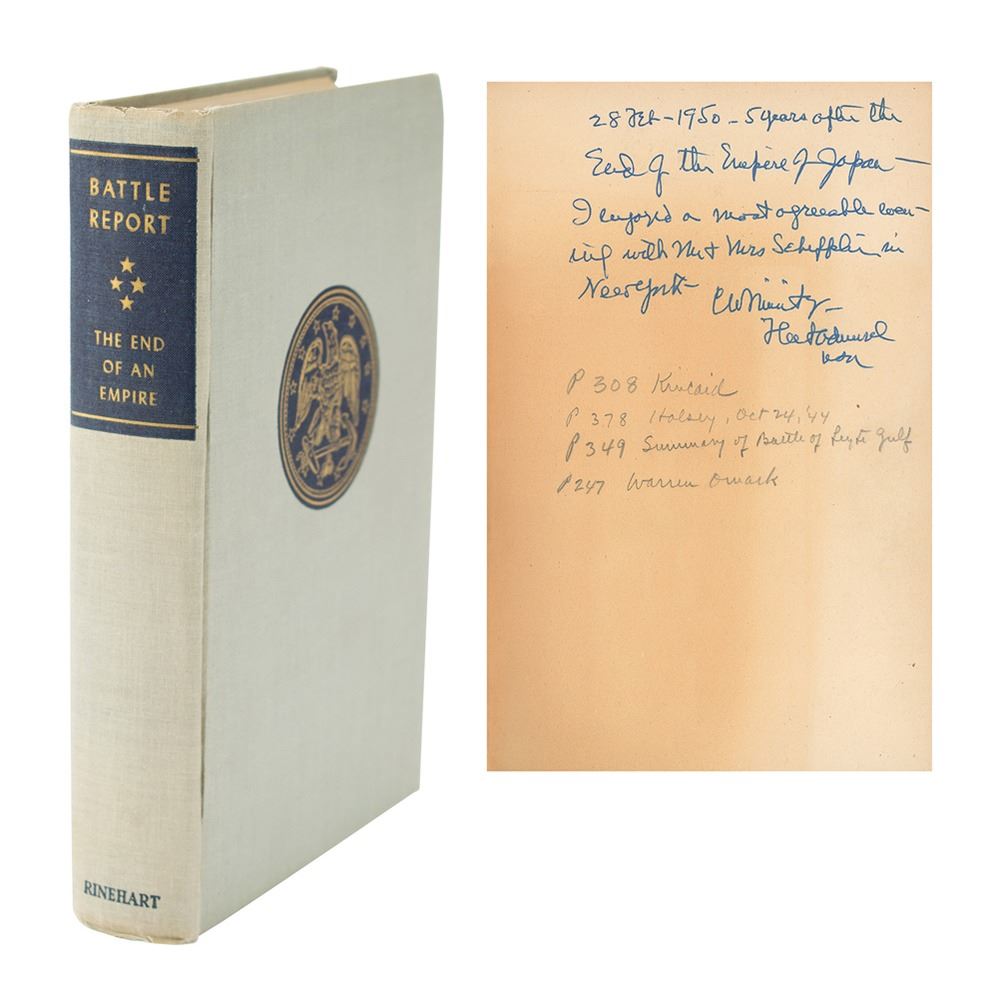 BATTLE
REPORT
THE END
OF AN
EMPIRE
RINEHART
28 Feb - 1950 - 5 years after the
End of the Empire of Japan -
I enjoyed a most agreeable even-
ing with Mr & Mrs Schieffelin in
New York - CW Nimitz -
Fleet Admiral
USN
P 308 Kincaid
P 378 Halsey, Oct 24, '44
P 349 Summary of Battle of Leyte Gulf
P 247 Warren Omark